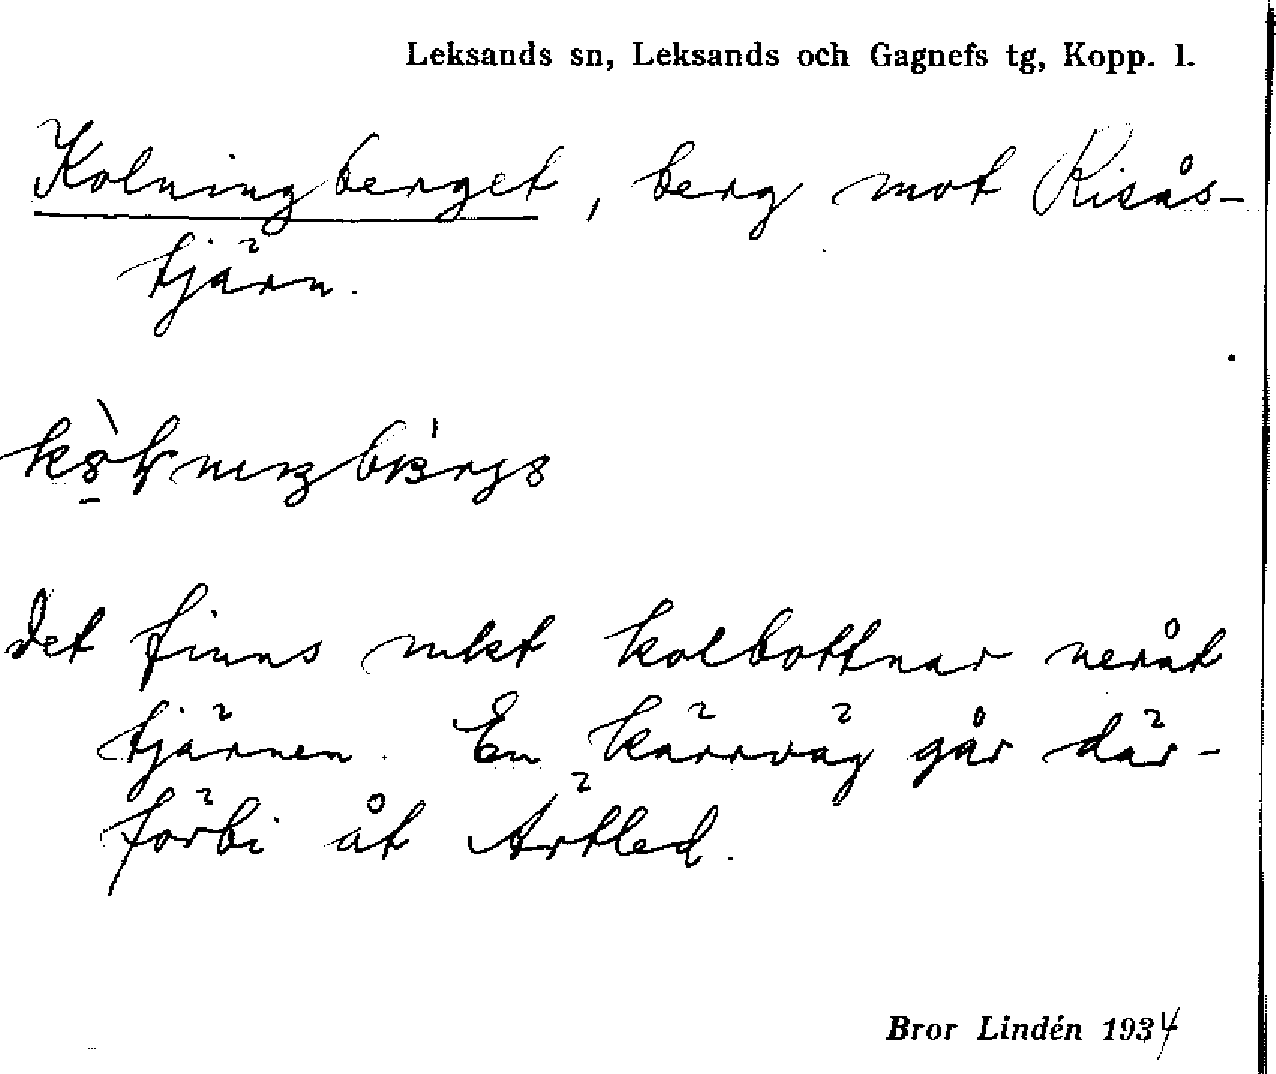 Leksands sn, Leksands och Gagnefs tg, Kopp. l.
Kolningberget, berg mot Risås-
tjärn.
Det finns mkt kolbottnar neråt
tjärnen. En kärrväg går där-
förbi åt Ärtled.
Bror Lindén 1934